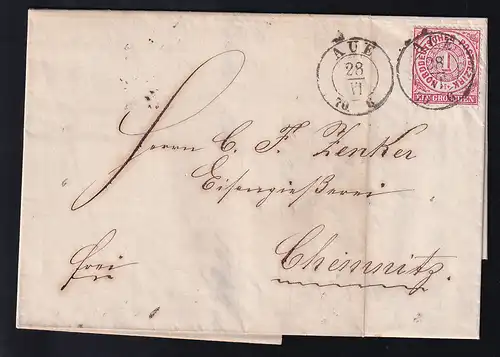 AUE
28
VI
70
NORDDEUTSCHER POSTBEZIRK
1
EIN GROSCHEN
Herrn C. F. Zenker
Eisengießerei
frei
Chemnitz.